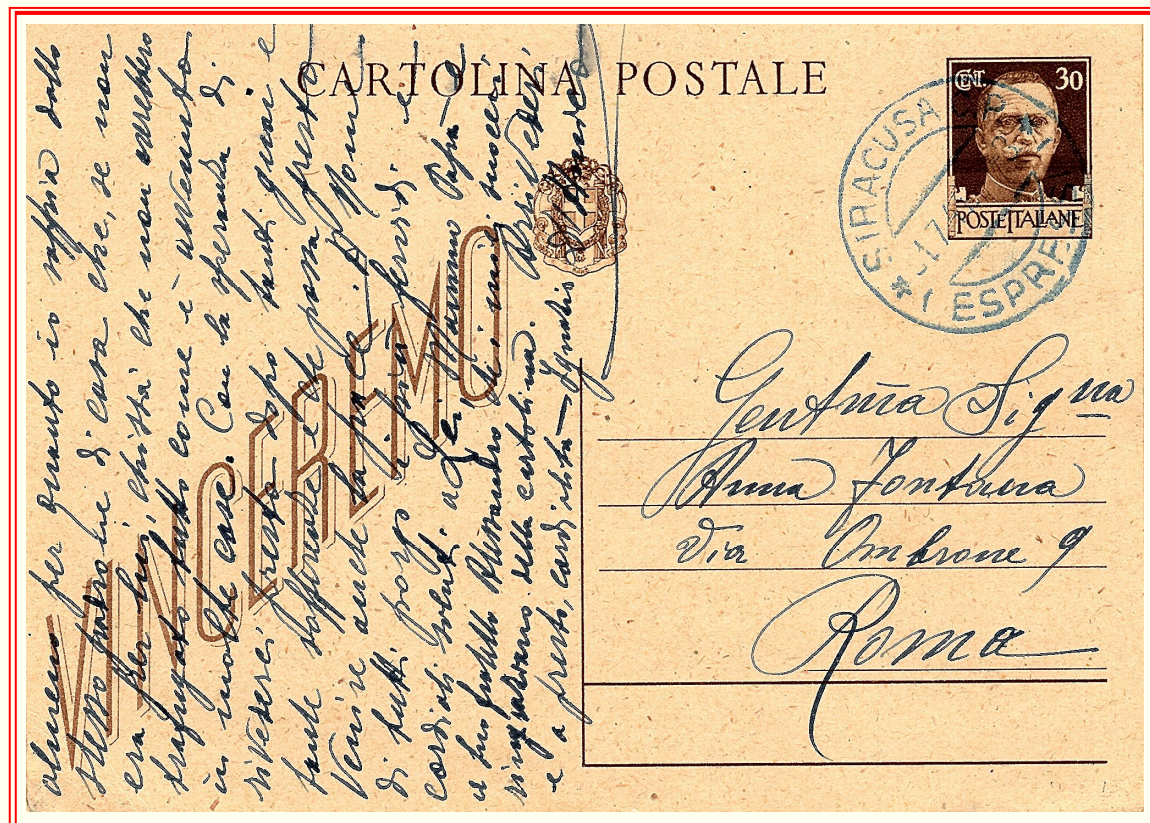 CARTOLINA POSTALE
CENT. 30
POSTE ITALIANE
SIRACUSA
* (ESPRESSI
VINCEREMO
Gentma Signa
Anna Fontana
Via Ombrone 9
Roma
almeno per quanto io sappia dallo
stesso padrone di casa che, se non
era per lui, chissà che non avrebbero
trafugato tutto come è avvenuto
in molte case. Con la speranza di
rivederci presto dopo tanti guai e
tante sofferenze e che possa presto
venire anche la pace. A nome
di tutti porgo i più fervidi e
cordiali saluti a Lei, Mamma Papà e
a suo fratello Alessandro
ringraziarmo della cartolina.
e a presto, cordialità